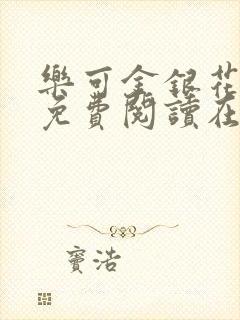 樂可金銀花
免費閱讀在
竇浩